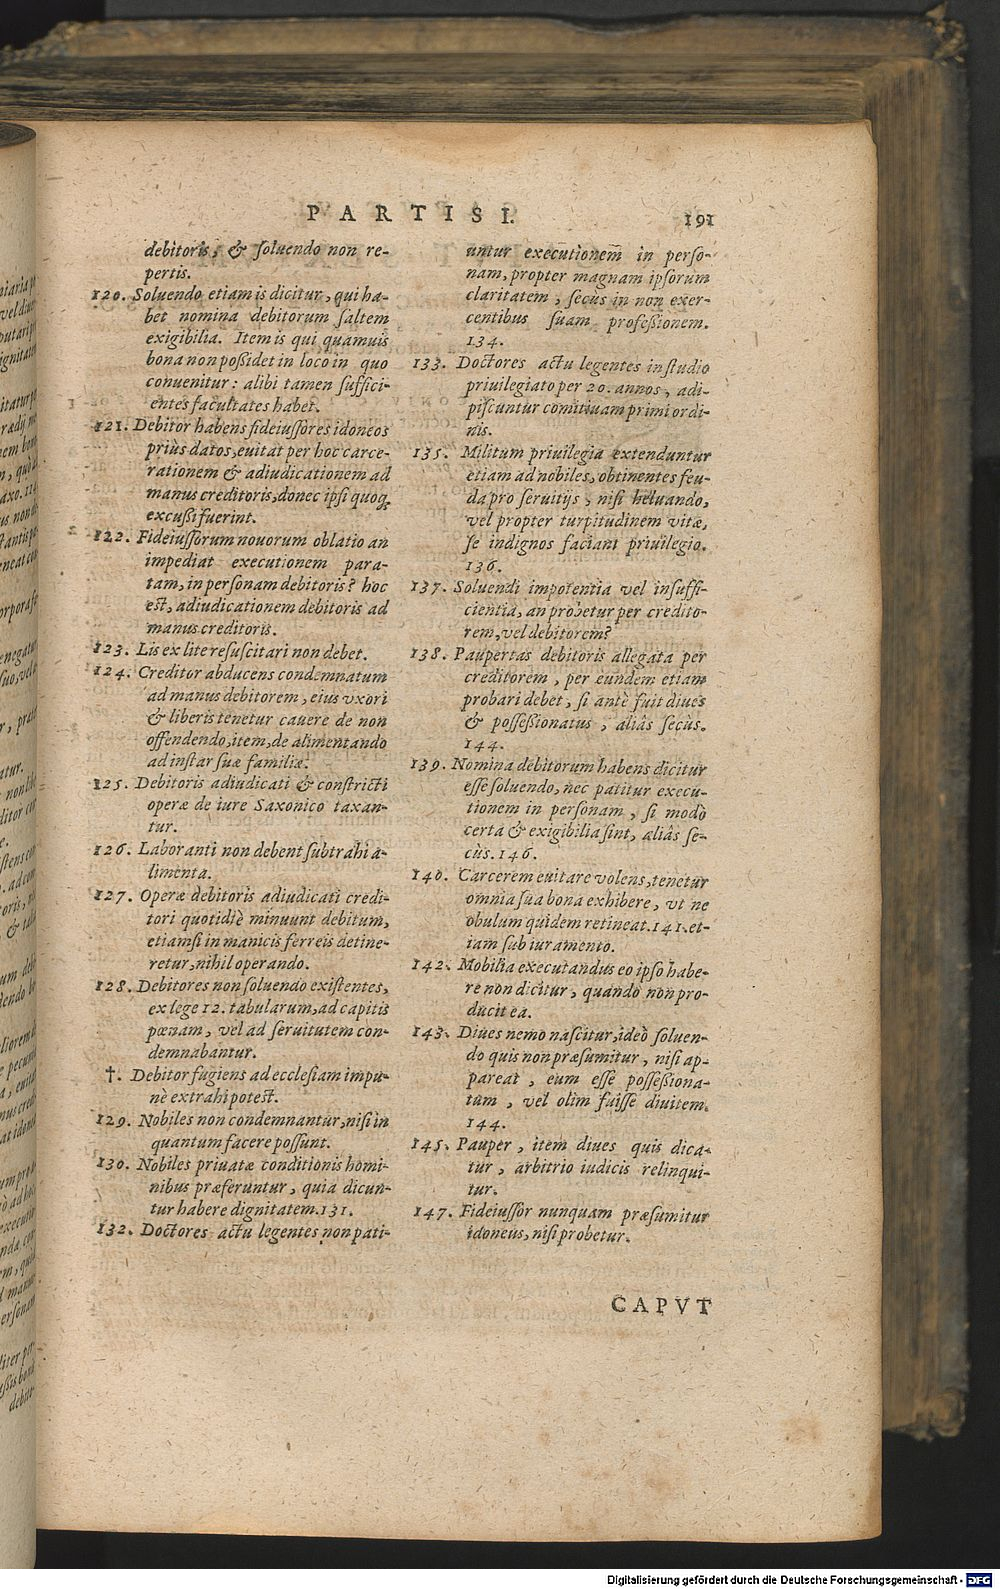 PARTIS I.
191
debitoris, & soluendo non re-
pertis.
120. Soluendo etiam is dicitur, qui ha-
bet nomina debitorum saltem
exigibilia. Item is qui quamuis
bona non possidet in loco in quo
conuenitur: alibi tamen suffici-
entes facultates habet.
121. Debitor habens fideiussores idoneos
priùs datos, euitat per hoc carce-
rationem & adiudicationem ad
manus creditoris, donec ipsi quoq;
excussi fuerint.
122. Fideiussorum nouorum oblatio an
impediat executionem para-
tam, in personam debitoris? hoc
est, adiudicationem debitoris ad
manus creditoris.
123. Lis ex lite resuscitari non debet.
124. Creditor abducens condemnatum
ad manus debitorem, eius vxori
& liberis tenetur cauere de non
offendendo, item, de alimentando
ad instar suæ familiæ.
125. Debitoris adiudicati & constricti
operæ de iure Saxonico taxan-
tur.
126. Laboranti non debent subtrahi a-
limenta.
127. Operæ debitoris adiudicati credi-
tori quotidiè minuunt debitum,
etiamsi in manicis ferreis detine-
retur, nihil operando.
128. Debitores non soluendo existentes,
ex lege 12. tabularum, ad capitis
pœnam, vel ad seruitutem con-
demnabantur.
†. Debitor fugiens ad ecclesiam impu-
nè extrahi potest.
129. Nobiles non condemnantur, nisi in
quantum facere possunt.
130. Nobiles priuatæ conditionis homi-
nibus præferuntur, quia dicun-
tur habere dignitatem. 131.
132. Doctores actu legentes non pati-
untur executionem in perso-
nam, propter magnam ipsorum
claritatem, secus in non exer-
centibus suam professionem.
134.
133. Doctores actu legentes in studio
priuilegiato per 20. annos, adi-
piscuntur comitiuam primi ordi-
nis.
135. Militum priuilegia extenduntur
etiam ad nobiles, obtinentes feu-
da pro seruitijs, nisi heluando,
vel propter turpitudinem vitæ,
se indignos faciant priuilegio.
136.
137. Soluendi impotentia vel insuffi-
cientia, an probetur per credito-
rem, vel debitorem?
138. Paupertas debitoris allegata per
creditorem, per eundem etiam
probari debet, si antè fuit diues
& possessionatus, aliâs secùs.
144.
139. Nomina debitorum habens dicitur
esse soluendo, nec patitur execu-
tionem in personam, si modò
certa & exigibilia sint, aliâs se-
cùs. 146.
140. Carcerem euitare volens, tenetur
omnia sua bona exhibere, vt ne
obulum quidem retineat. 141. et-
iam sub iuramento.
142. Mobilia executandus eo ipso habe-
re non dicitur, quando non pro-
ducit ea.
143. Diues nemo nascitur, ideò soluen-
do quis non præsumitur, nisi ap-
pareat, eum esse possessiona-
tum, vel olim fuisse diuitem.
144.
145. Pauper, item diues quis dica-
tur, arbitrio iudicis relinqui-
tur.
147. Fideiussor nunquam præsumitur
idoneus, nisi probetur.
CAPVT
Digitalisierung gefördert durch die Deutsche Forschungsgemeinschaft - DFG